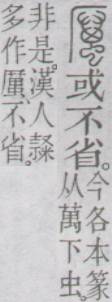 或不省。今各本篆
从萬下虫。
非是。漢人隸
多作厲不省。